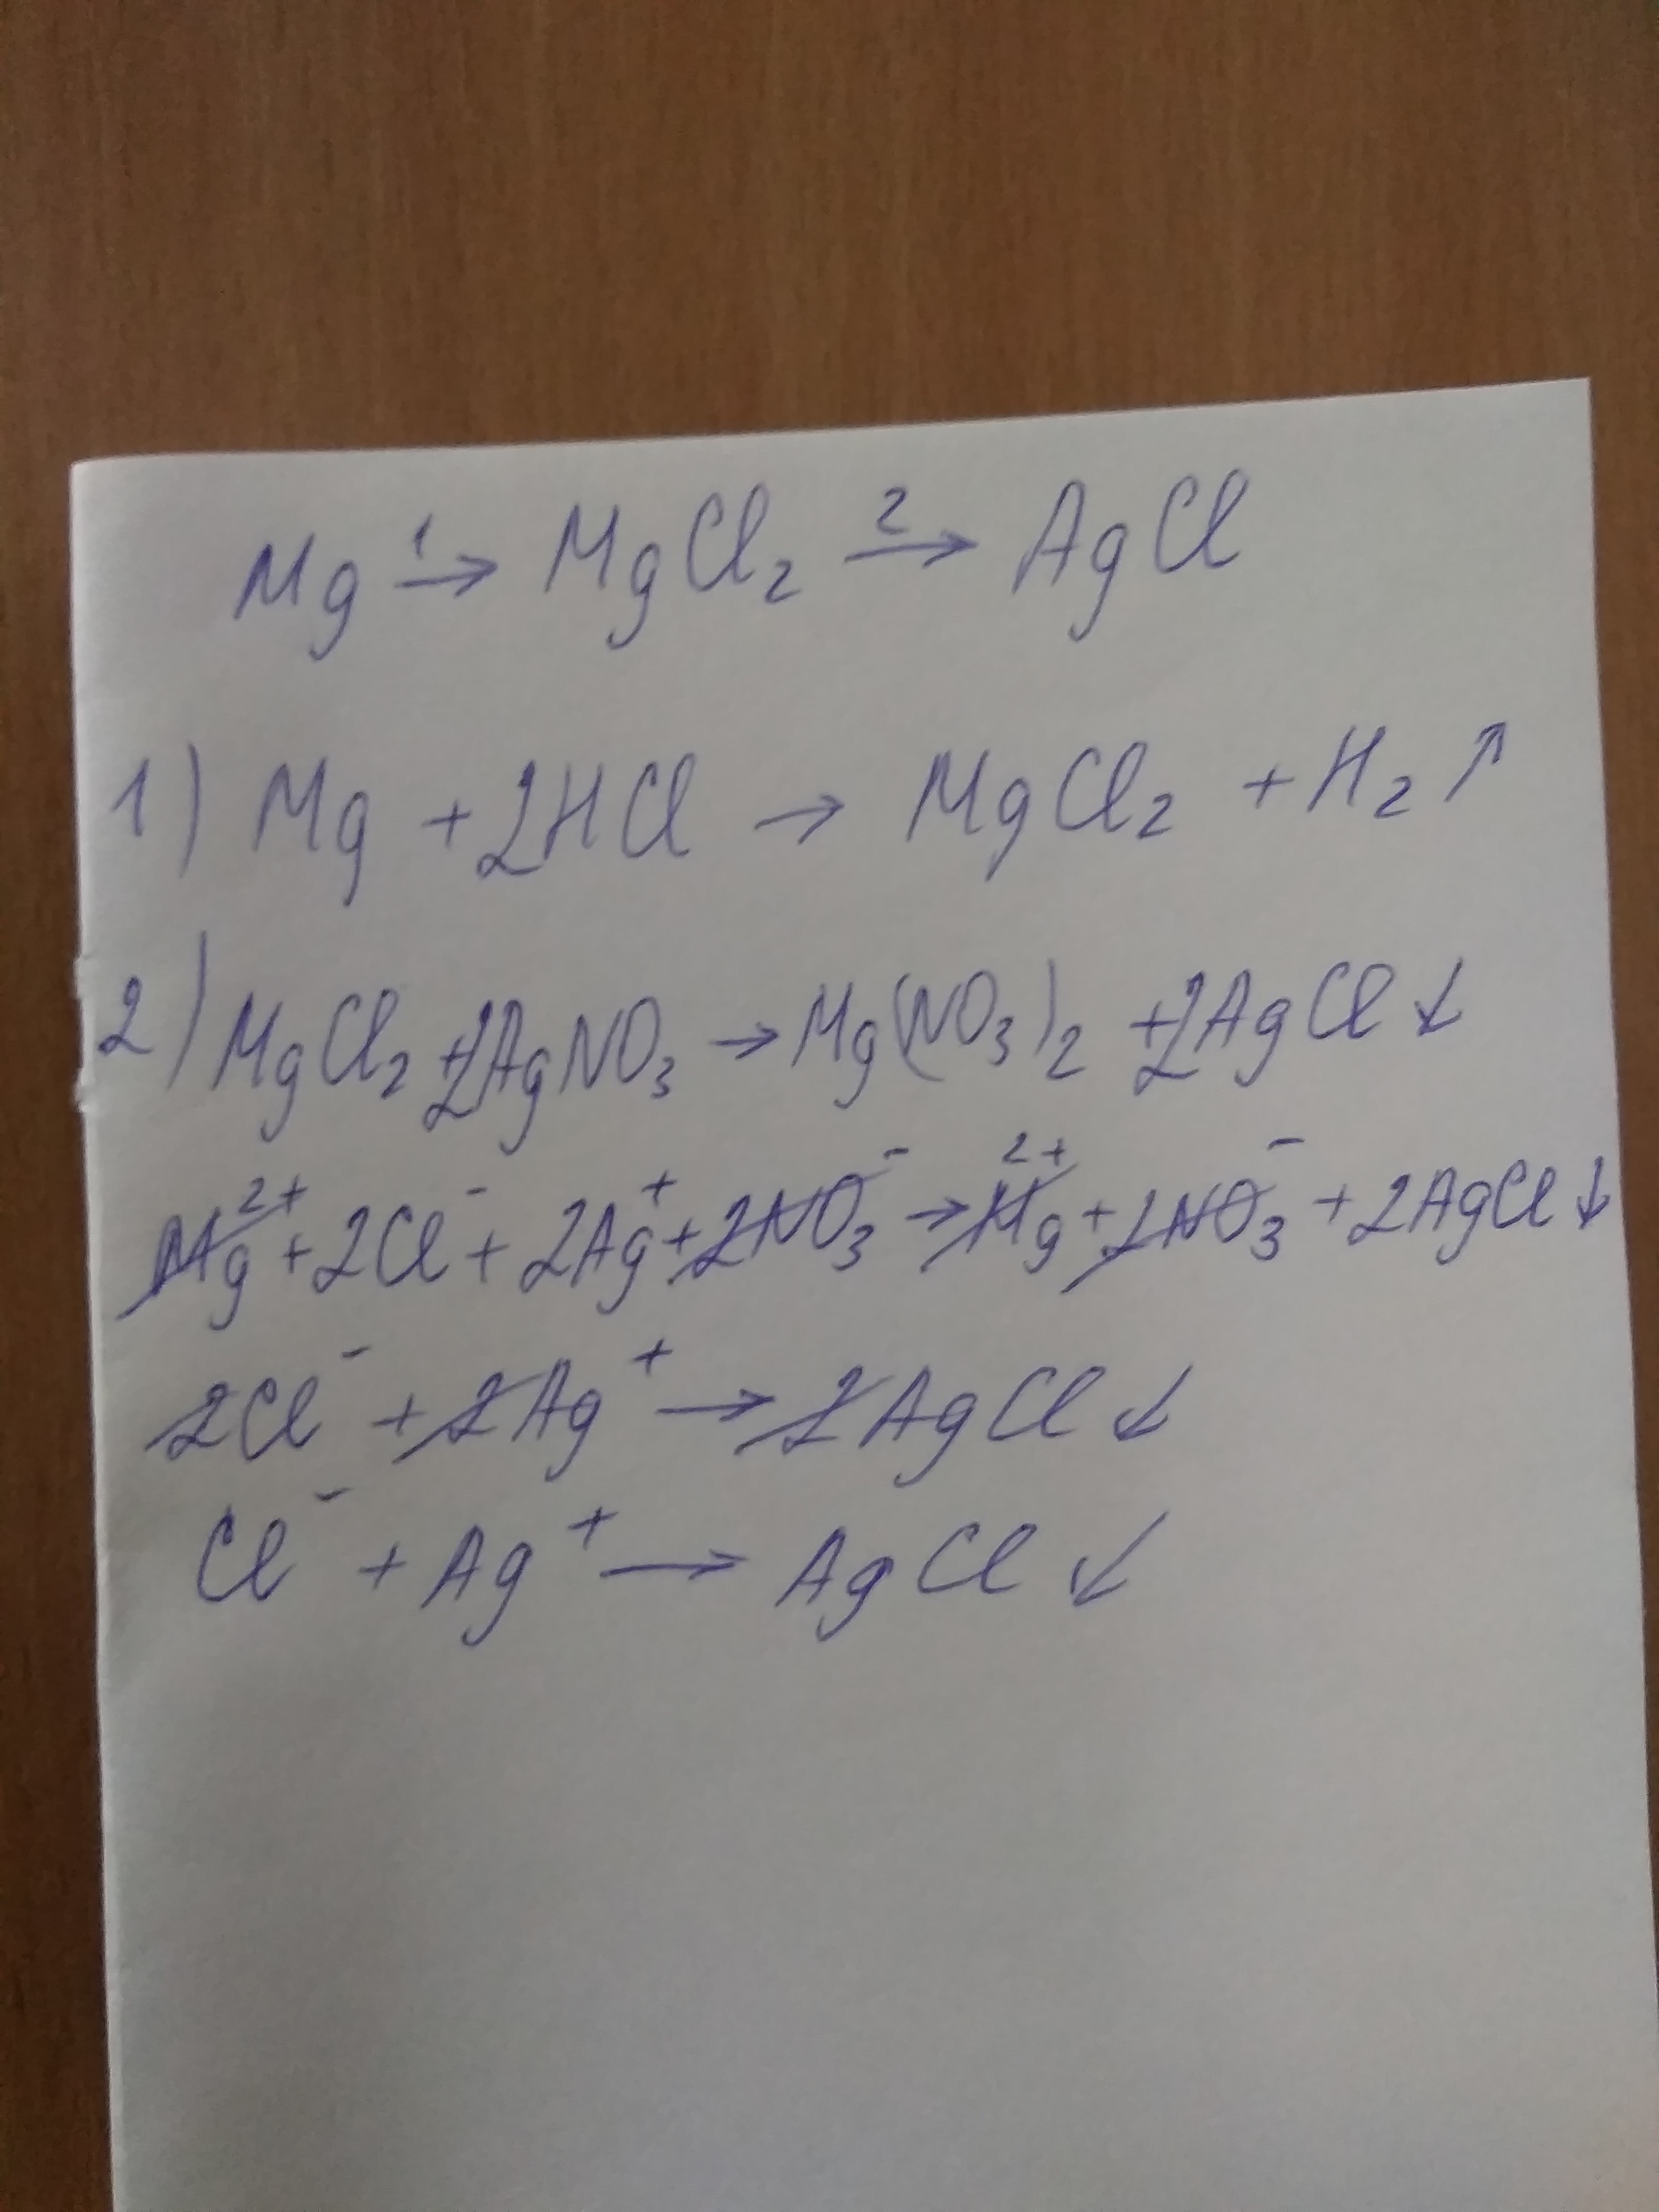 Mg →¹ MgCl₂ →² AgCl
1) Mg + 2HCl → MgCl₂ + H₂↑
2) MgCl₂ + 2AgNO₃ → Mg(NO₃)₂ + 2AgCl↓
Mg²⁺ + 2Cl⁻ + 2Ag⁺ + 2NO₃⁻ → Mg²⁺ + 2NO₃⁻ + 2AgCl↓
2Cl⁻ + 2Ag⁺ → 2AgCl↓
Cl⁻ + Ag⁺ → AgCl↓